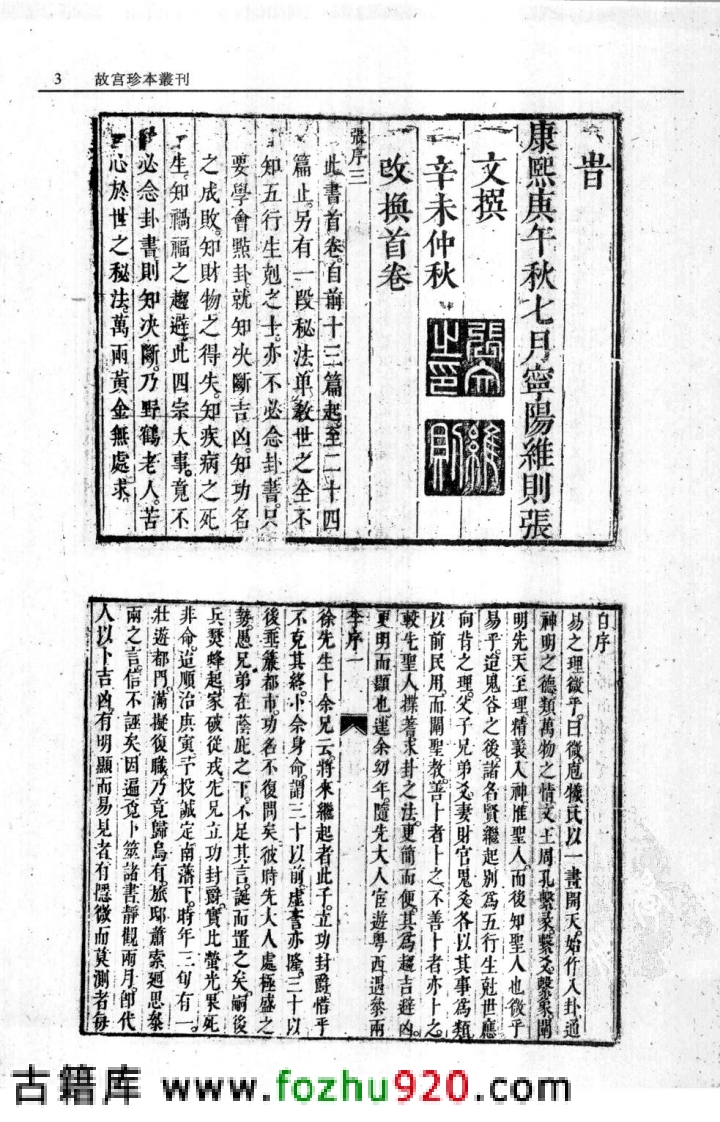 3 故宮珍本叢刊
旹
康熙庚午秋七月寧陽維則張
文撰
辛未仲秋
改換首卷
張文之印
維則
張序三
此書首卷自前十三篇起至二十四
篇止另有一段秘法单教世之全不
知五行生剋之士亦不必念卦書只
要學會點卦就知决斷吉凶知功名
之成敗知財物之得失知疾病之死
生知禍福之趨避此四宗大事竟不
必念卦書則知决斷乃野鶴老人苦
心於世之秘法萬兩黃金無處求
自序
易之理微乎曰微庖犧氏以一畫開天始作八卦通
神明之德類萬物之情文王周孔繫彖繫爻繫象闡
明先天至理精義入神惟聖人而後知聖人也微乎
易乎迨鬼谷之後諸名賢繼起别爲五行生尅世應
向背之理父子兄弟爻妻財官鬼爻各以其事爲類
以前民用而闡聖教善卜者卜之不善卜者亦卜之
較先聖人揲蓍求卦之法更簡而便其爲趨吉避凶
更明而顯也運余幼年隨先大人宦遊粤西遇叅兩
李序一
徐先生卜余兄云將來繼起者此子立功封爵惜乎
不克其終卜余身命謂三十以前虚書亦隆三十以
後垂簾都市功名不復問矣彼時先大人處極盛之
勢愚兄弟在蔭庇之下不足其言誕而置之矣嗣後
兵燹蜂起家破從戎先兄立功封爵實比螢光果死
非命迨順治庚寅予投誠定南藩下時年三旬有一
壯遊都門滿擬復職乃竟歸烏有旅邸蕭索廻思叅
兩之言信不誣矣因遍覓卜筮諸書靜觀兩月卽代
人以卜吉凶有明顯而易見者有隱微而莫測者每
古籍库 www.fozhu920.com